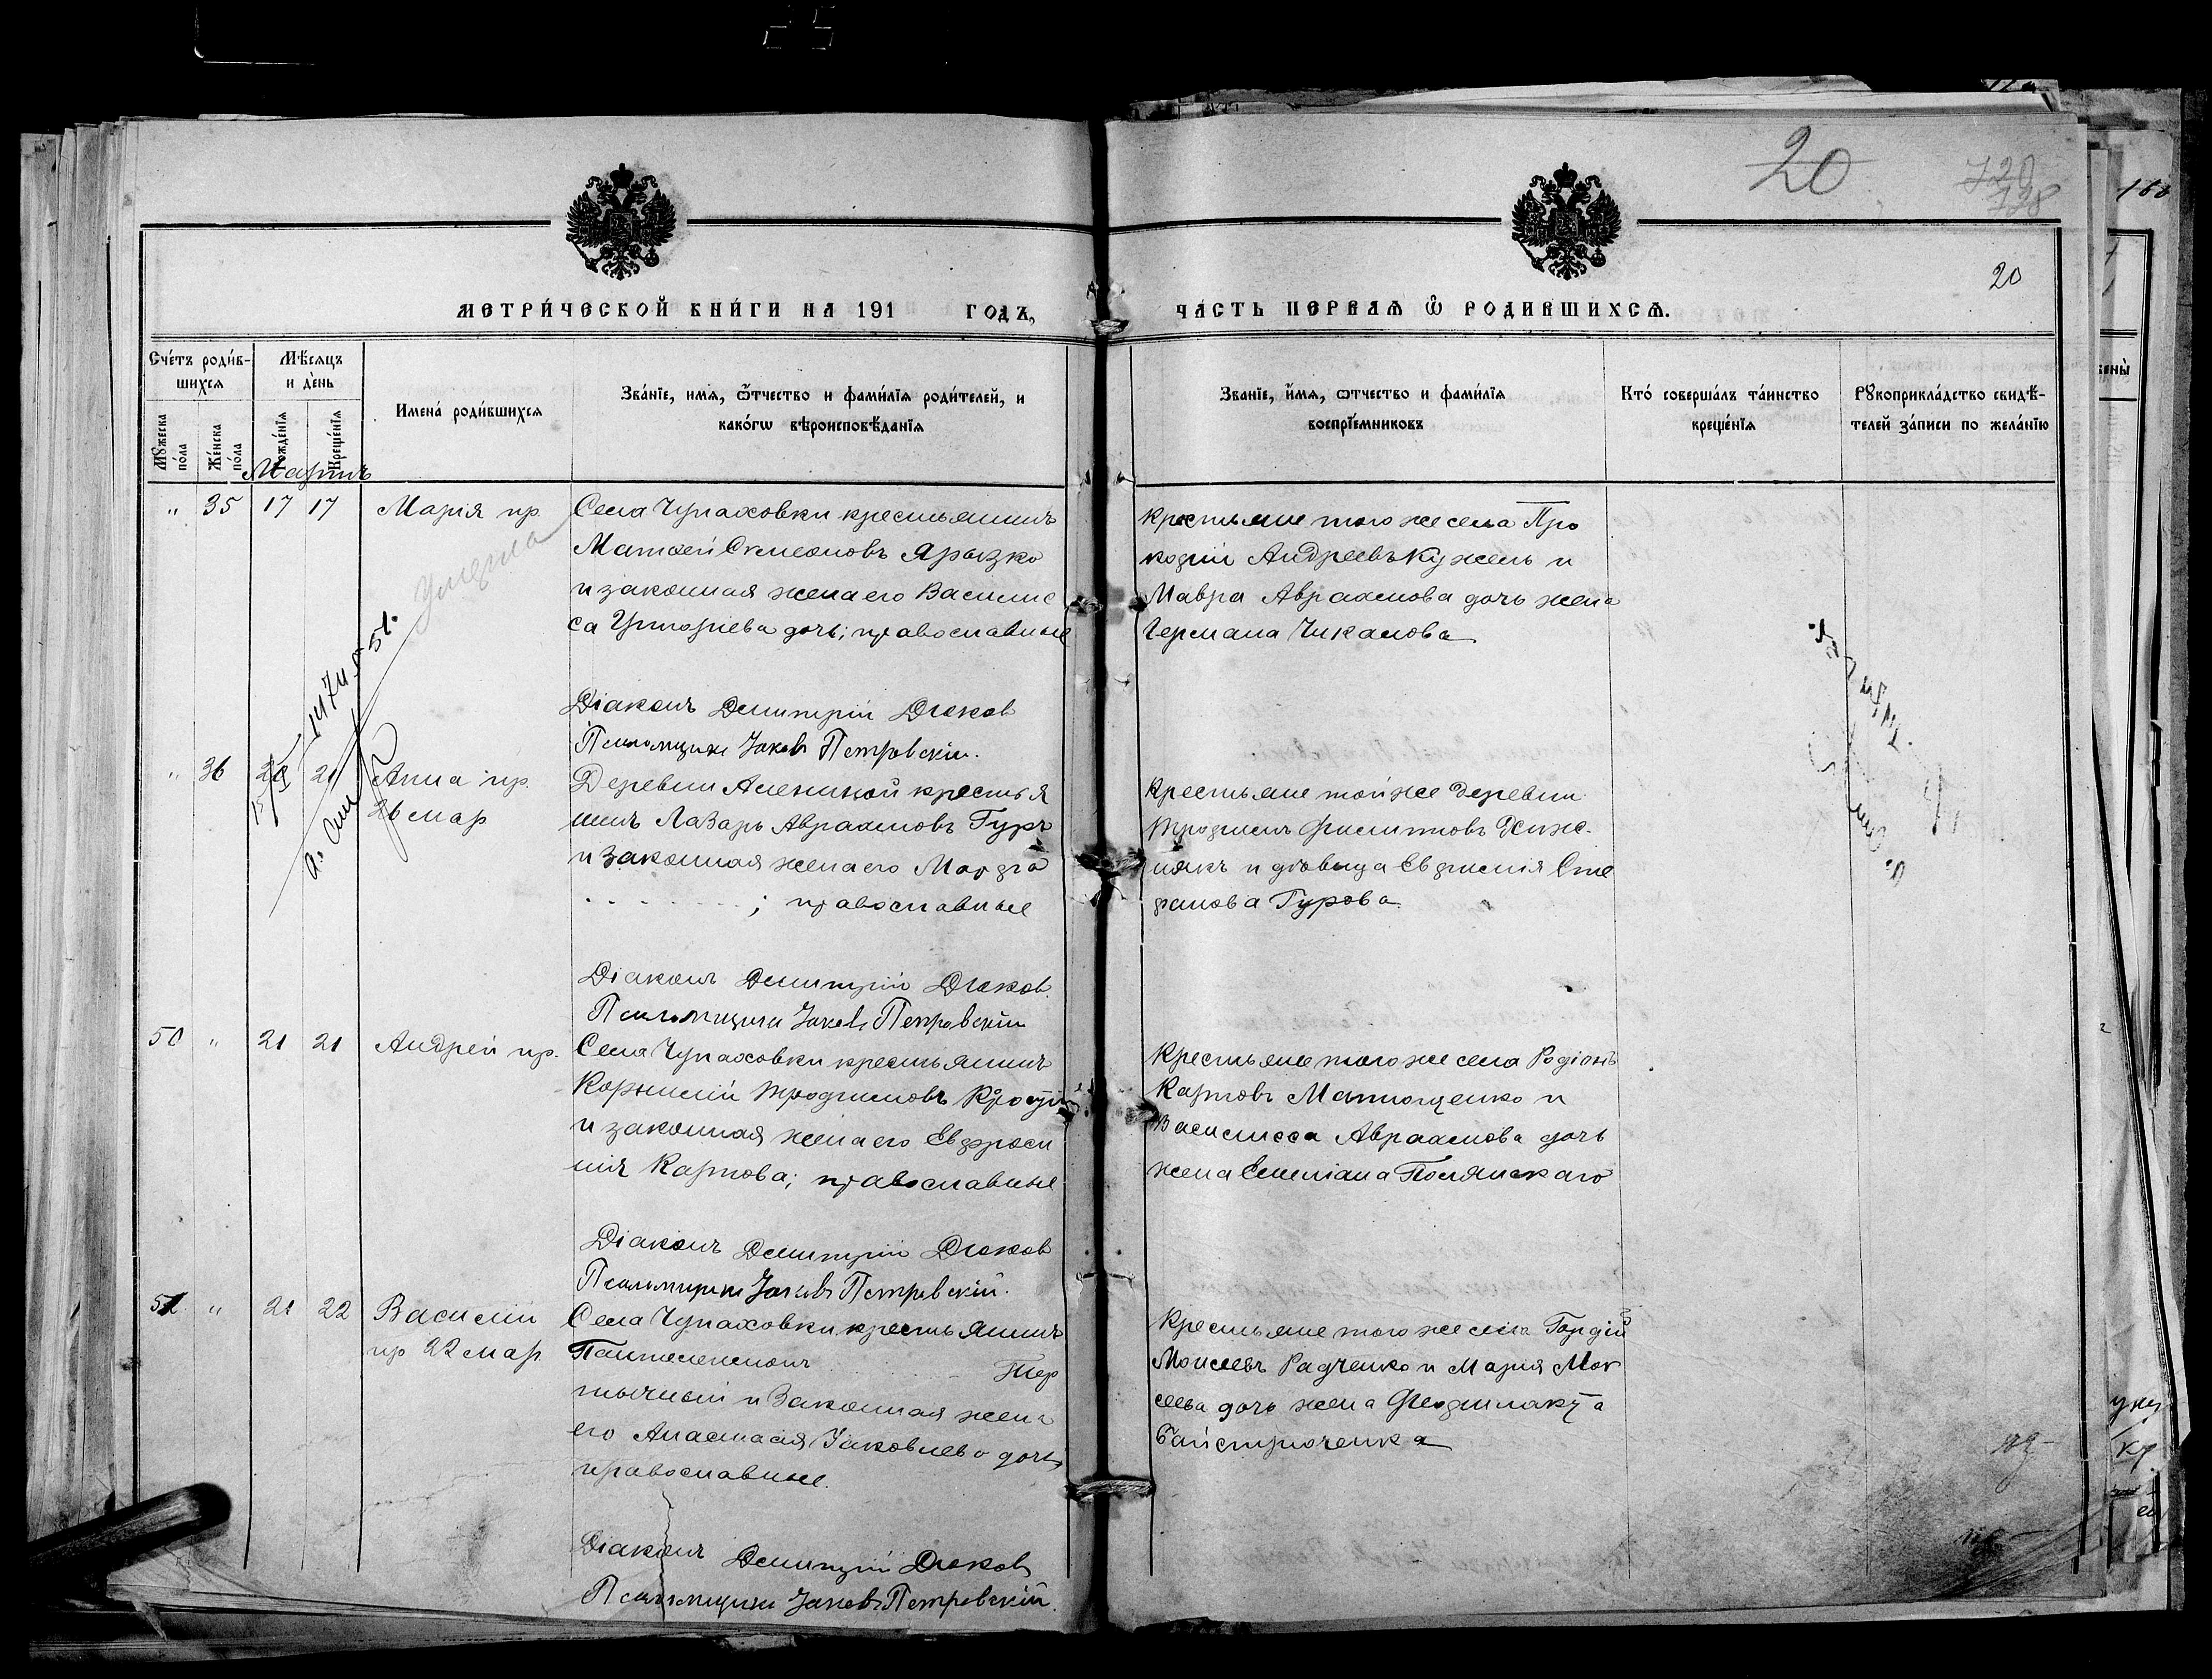 20
728
20
МЕТРИ́ЧЕСКОЙ КНИ́ГИ НА 191 ГОДЪ,
ЧАСТЬ ПЕРВАЯ Ѡ РОДИВШИХСЯ.
Сче́тъ роди́в-
шихся
Мѣ́сяцъ
и де́нь
Имена́ роди́вшихся
Зва́нїе, имя, ѻ҆́тчество и фами́лїя роди́телей, и
како́гѡ вѣроисповѣ́данїя
Мꙋжеска по́ла
Же́нска по́ла
Рожде́нїя
Креще́нїя
Званїе, и҆́мя, ѻтчество и фамилїя
воспрїемниковъ
Кто́ соверша́лъ та́инство
креще́нїя
Рꙋкоприкла́дство свидѣ́-
телей за́писи по жела́нїю
Мартъ
" 35 17 17 Марія пр.
Села Чупаховки крестьянинъ
Матѳей Симеоновъ Ярызко
и законная жена его Василис
са Григорьева дочь; православные
Умерла
Діаконъ Димитрій Дюков
Псаломщикъ Іаковъ Петровскій.
Крестьяне того же села Про
кофій Андреевъ Кужель и
Мавра Авраамова дочь жена
Германа Чикалова
" 36 20 21 Анна пр.
26 мар
Деревни Алениной крестья
нинъ Лазарь Авраамовъ Гуръ
и законная жена его Марѳа
. . . . . . . ; православные
Діаконъ Димитрій Дюков.
Псаломщикъ Іаковъ Петровскій
Крестьяне той же деревни
Трофимъ Филипповъ Хиж-
някъ и дѣвица Евфимія Сте
фанова Гурова.
50 " 21 21 Андрей пр.
Села Чупаховки крестьянинъ
Корнилій Трофимовъ
и законная жена его Евфроси
нія Карпова; православные
Діаконъ Димитрій Дюков
Псаломщикъ Іаковъ Петровскій.
Крестьяне того же села Родіонъ
Карповъ Матющенко и
Василисса Авраамова дочь
жена Емеліана Полянскаго
51 " 21 22 Василій
пр 22 мар.
Села Чупаховки крестьянинъ
Пантелеимонъ Тер
тычный и законная жена
его Анастасія Іаковлева дочь;
православные.
Діаконъ Димитрій Дюков
Псаломщикъ Іаковъ Петровскій.
Крестьяне того же села Гордій
Моисеевъ Радченко и Марія Мои
сеева дочь жена Феофилакта
Байстрюченка